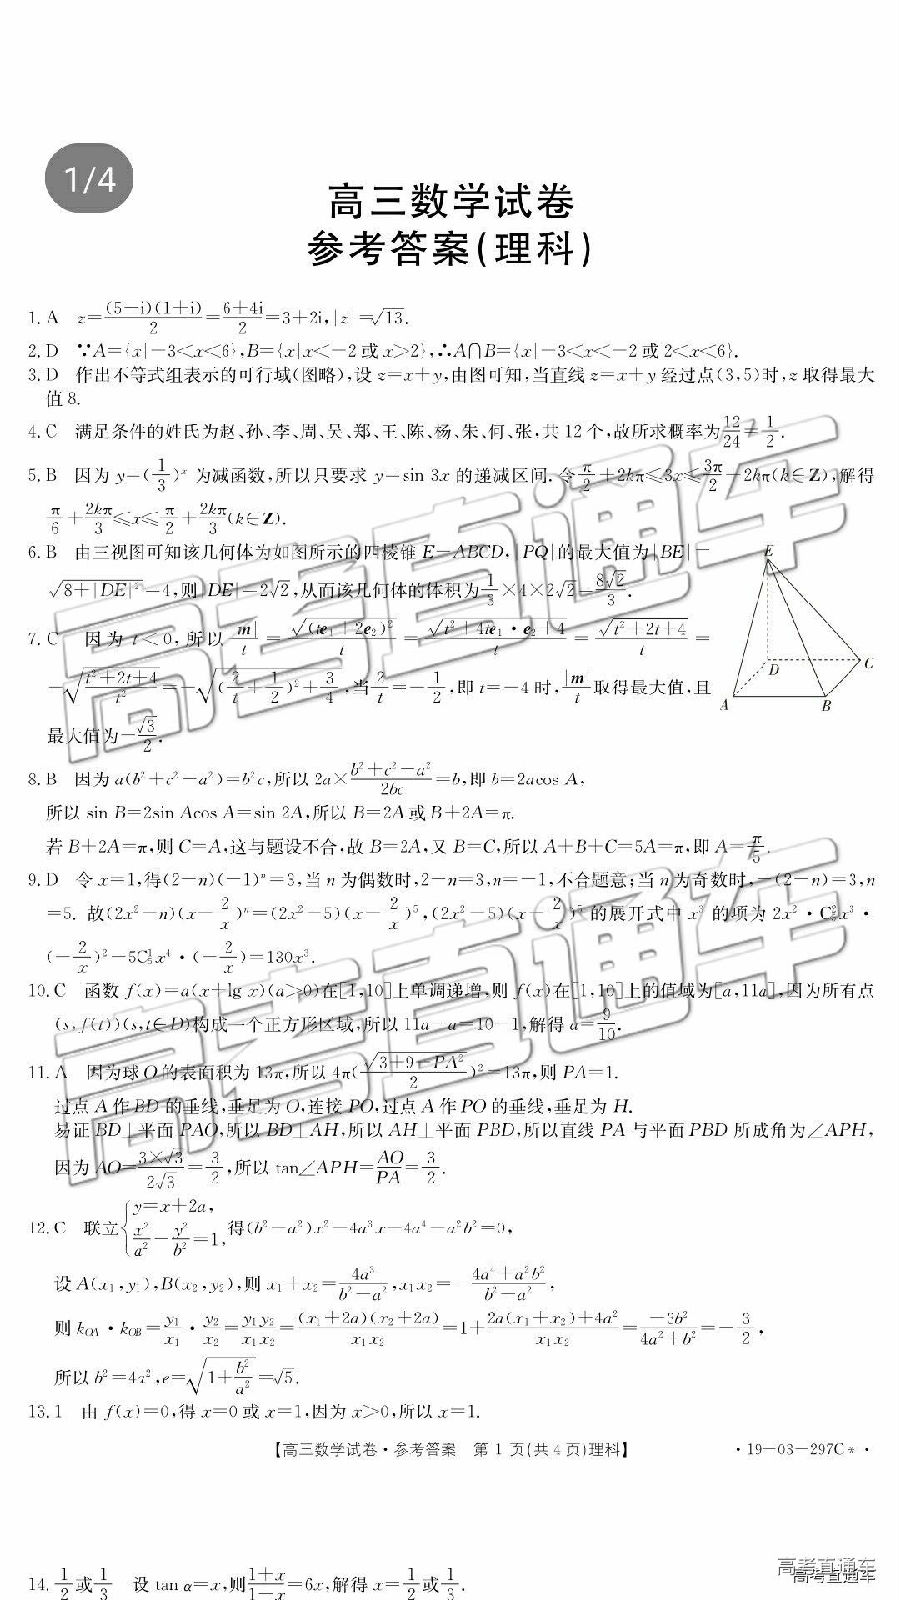 1/4
高三数学试卷
参考答案(理科)
1. A z=(5−i)(1+i)/2=6+4i/2=3+2i,|z|=√13.
2. D ∵A={x|−3<x<6},B={x|x<−2或x>2},∴A∩B={x|−3<x<−2或2<x<6}.
3. D 作出不等式组表示的可行域(图略),设z=x+y,由图可知,当直线z=x+y经过点(3,5)时,z取得最大
值8.
4. C 满足条件的姓氏为赵、孙、李、周、吴、郑、王、陈、杨、朱、何、张,共12个,故所求概率为12/24=1/2.
5. B 因为y=(1/3)^x为减函数,所以只要求y=sin 3x的递减区间.令π/2+2kπ≤3x≤3π/2+2kπ(k∈Z),解得
π/6+2kπ/3≤x≤π/2+2kπ/3(k∈Z).
6. B 由三视图可知该几何体为如图所示的四棱锥E−ABCD,|PQ|的最大值为|BE|=
√(8+|DE|²)=4,则|DE|=2√2,从而该几何体的体积为1/3×4×2√2=8√2/3.
E
D
C
A
B
7. C 因为t<0,所以|m|/t=√((te₁+2e₂)²)/t=√(t²+4te₁·e₂+4)/t=√(t²+2t+4)/t=
−√((t²+2t+4)/t²)=−√((2/t+1/2)²+3/4),当2/t=−1/2,即t=−4时,|m|/t取得最大值,且
最大值为−√3/2.
8. B 因为a(b²+c²−a²)=b²c,所以2a×(b²+c²−a²)/2bc=b,即b=2acos A,
所以sin B=2sin Acos A=sin 2A,所以B=2A或B+2A=π.
若B+2A=π,则C=A,这与题设不合,故B=2A,又B=C,所以A+B+C=5A=π,即A=π/5.
9. D 令x=1,得(2−n)(−1)ⁿ=3,当n为偶数时,2−n=3,n=−1,不合题意;当n为奇数时,−(2−n)=3,n
=5. 故(2x²−n)(x−2/x)ⁿ=(2x²−5)(x−2/x)⁵,(2x²−5)(x−2/x)⁵的展开式中x³的项为2x²·C₅²x³·
(−2/x)²−5C₅¹x⁴·(−2/x)=130x³.
10. C 函数f(x)=a(x+lg x)(a>0)在[1,10]上单调递增,则f(x)在[1,10]上的值域为[a,11a],因为所有点
(s,f(t))(s,t∈D)构成一个正方形区域,所以11a−a=10−1,解得a=9/10.
11. A 因为球O的表面积为13π,所以4π(√(3+9+PA²)/2)²=13π,则PA=1.
过点A作BD的垂线,垂足为O,连接PO,过点A作PO的垂线,垂足为H.
易证BD⊥平面PAO,所以BD⊥AH,所以AH⊥平面PBD,所以直线PA与平面PBD所成角为∠APH,
因为AO=3×√3/2√3=3/2,所以tan∠APH=AO/PA=3/2.
12. C 联立{y=x+2a, x²/a²−y²/b²=1,得(b²−a²)x²−4a³x−4a⁴−a²b²=0,
设A(x₁,y₁),B(x₂,y₂),则x₁+x₂=4a³/(b²−a²),x₁x₂=−(4a⁴+a²b²)/(b²−a²),
则k_OA·k_OB=y₁/x₁·y₂/x₂=y₁y₂/x₁x₂=(x₁+2a)(x₂+2a)/x₁x₂=1+(2a(x₁+x₂)+4a²)/x₁x₂=−3b²/(4a²+b²)=−3/2,
所以b²=4a²,e=√(1+b²/a²)=√5.
13. 1 由f(x)=0,得x=0或x=1,因为x>0,所以x=1.
【高三数学试卷·参考答案 第1页(共4页)理科】
·19−03−297C*·
14. 1/2或1/3 设tan α=x,则(1+x)/(1−x)=6x,解得x=1/2或1/3.
高考直通车
高考直通车
高考直通车
高考直通车